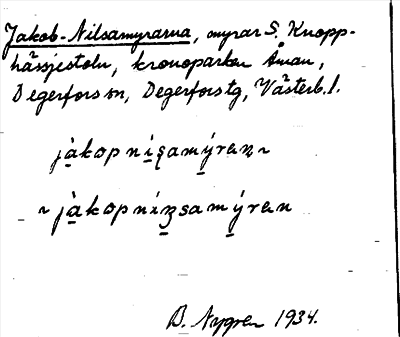 Jakob-Nilsamyrarna, myrar S. Knopp-
hässjestoln, kronoparken Åman,
Degerfors sn, Degerfors tg, Västerb. l.
jàkop nísamýran ~
~ jàkopnízsamýran
B. Nygren 1934.